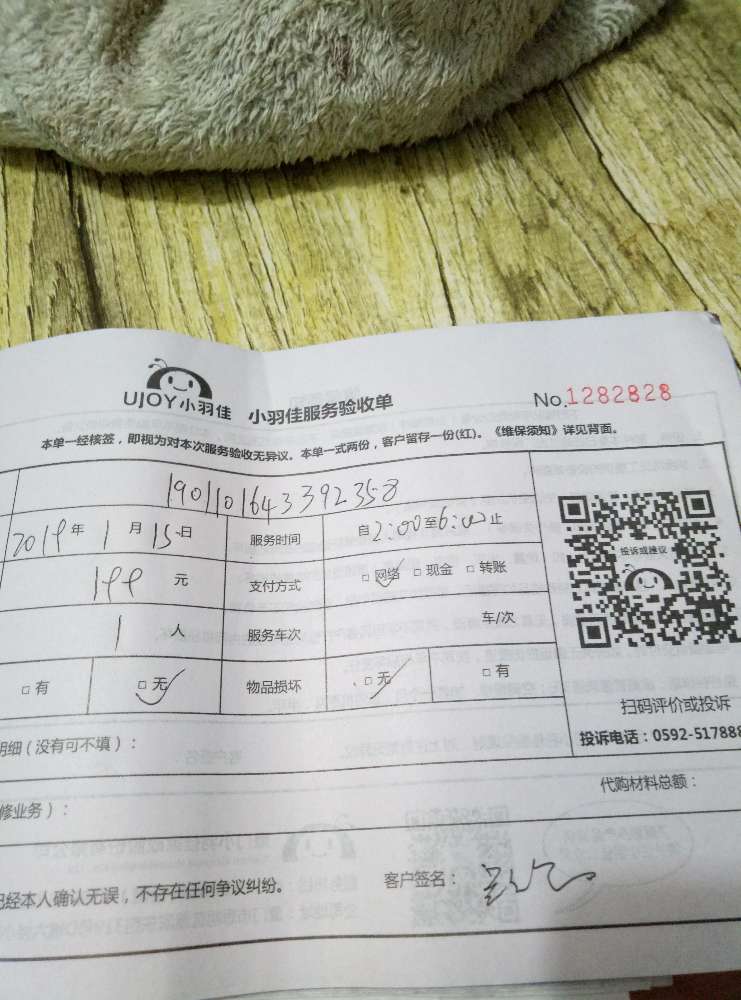 UJOY小羽佳 小羽佳服务验收单 No.1282828
本单一经核签，即视为对本次服务验收无异议。本单一式两份，客户留存一份(红)。《维保须知》详见背面。
190110164339 2358
2019年 1月 15日 服务时间 自2:00至6:00止
199 元 支付方式 □网络 □现金 □转账
1 人 服务车次 车/次
□有 □无 物品损坏 □无 □有
投诉或建议
扫码评价或投诉
投诉电话：0592-517888
明细（没有可不填）：
代购材料总额：
修业务）：
已经本人确认无误，不存在任何争议纠纷。 客户签名：